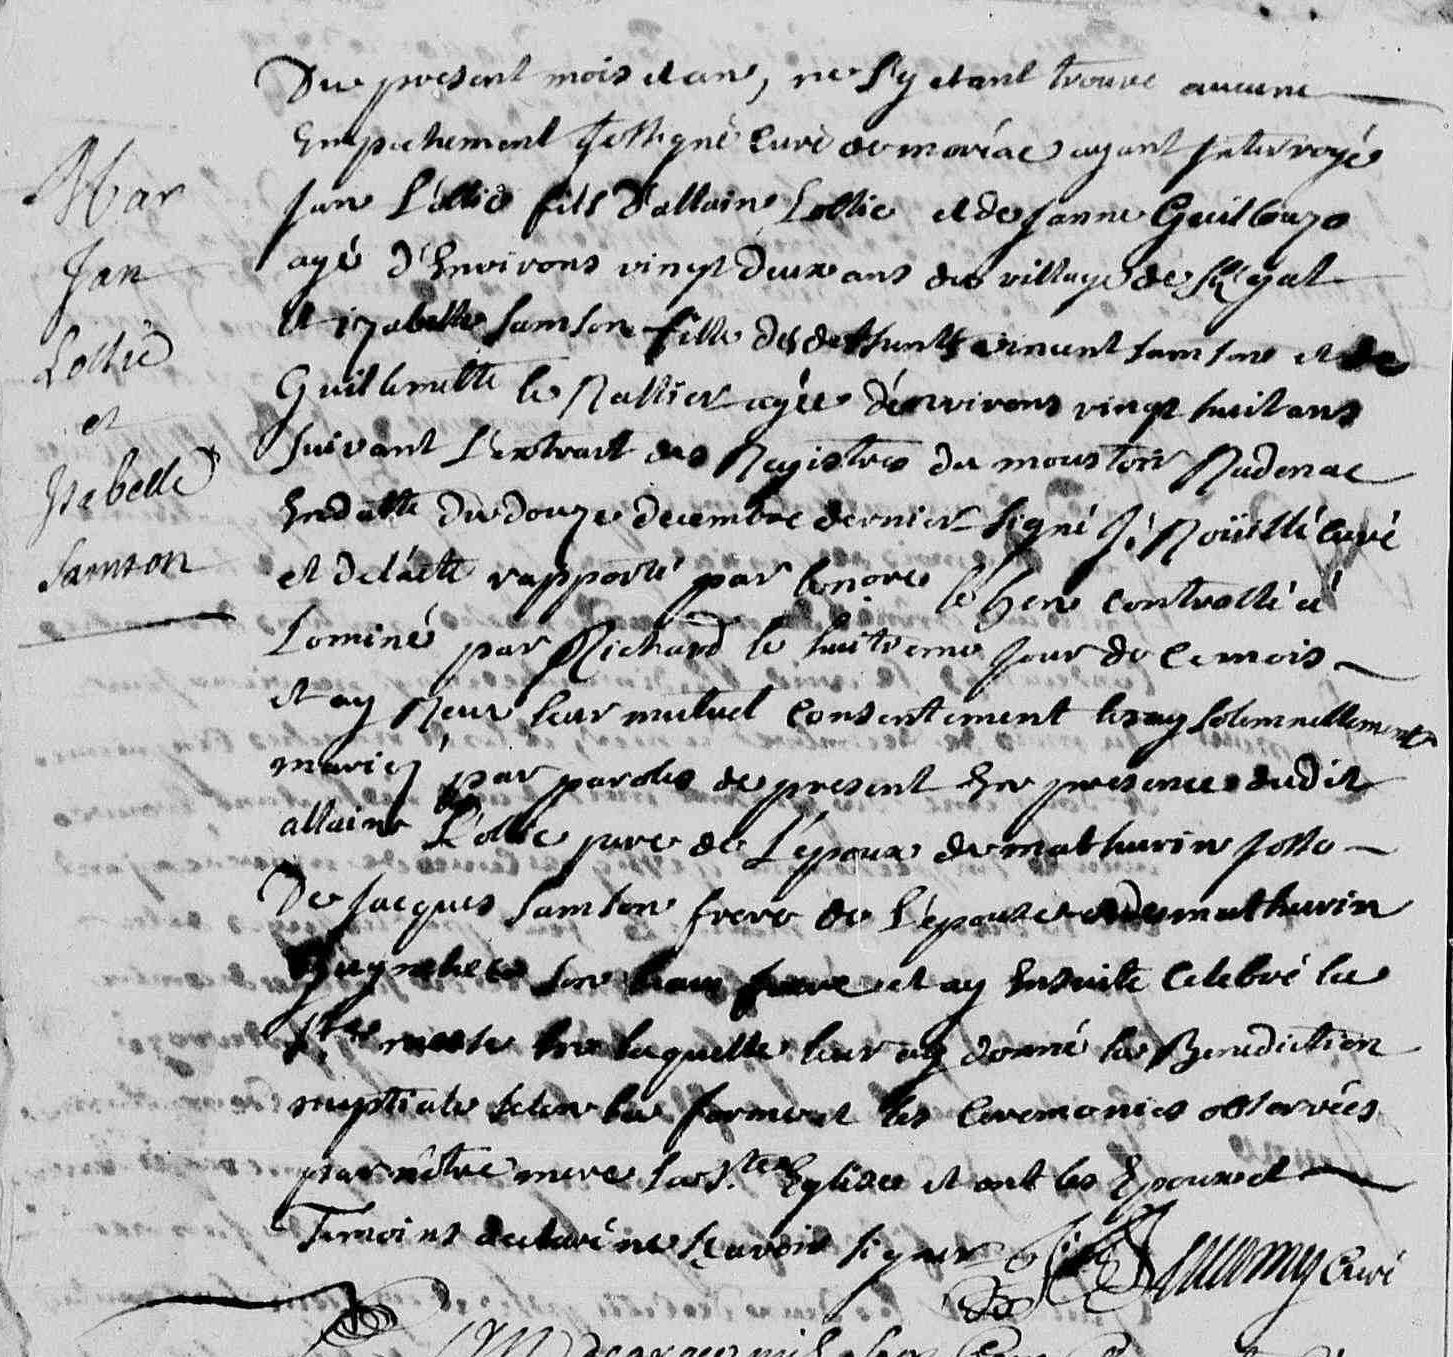 Mar
Jan
Lollic
et
Isabelle
Samson
Du present mois et an, ne s'y etant trouvé aucune
Empechement je soussigné curé de moréac ayant Interrogé
Jan Lollic fils d'allain Lollic et de janne Guillouzo
agé d'Environs vingt deux ans du village de
Et izabelle samson fille des deffunts vincent samson et de
Guillemette le Rallier agée d'environs vingt huit ans
suivant L'extrait des Registres du moustoir Radenac
En datte du douze decembre dernier signé curé
et de l'acte rapporté par le controllé à
Lominé par Richard le huitieme jour de ce mois
et ay Receu leur mutuel consentement les ay solemnellement
mariés par paroles de present En presence dudit
allain Lollic pere de L'epoux de mathurin josso
De jacques samson frere de L'epouse et de mathurin
son beau frere et ay Ensuite celebré la
s.te messe en laquelle leur ay donné la Benediction
nuptiale selon la forme et les ceremonies observées
par nôtre mere la s.te Eglise et ont les Epoux et
Temoins declaré ne sçavoir signer
curé